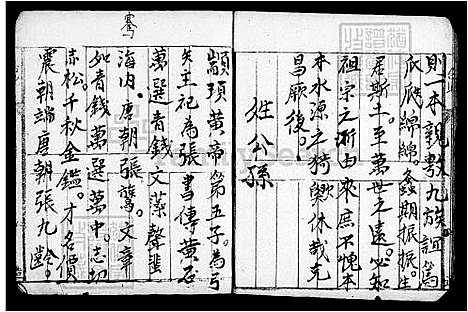 則一本親敦九族誼篤
瓜瓞綿綿螽斯振振生
居斯土至萬世之遠必知
祖宗之所由來庶不愧本
本水源之猗歟休哉克
昌厥後
姓公孫
騫
顓頊黃帝第五子為弓
矢主祀為張書傳黃石
萬選青錢文藻聲蜚
海內唐朝張鷟文章
如青錢萬選萬中志切
赤松千秋金鑑才名價
震朝端唐朝張九齡